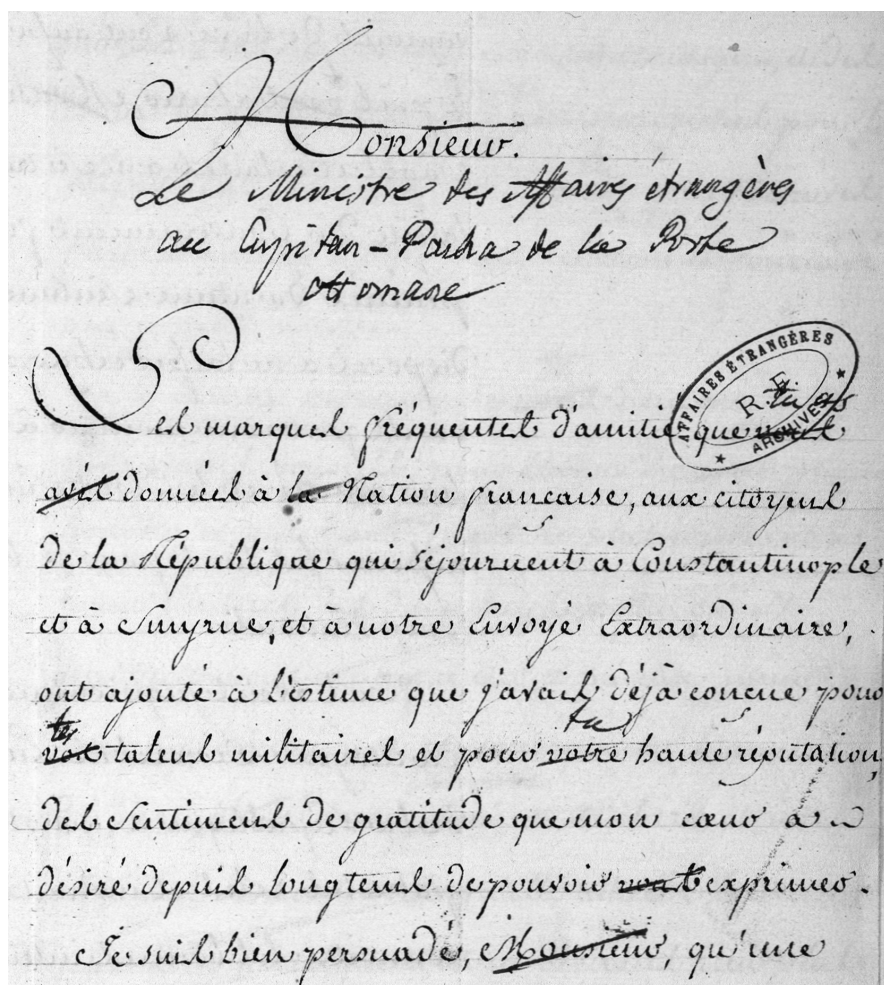 Monsieur.
Le Ministre des Affaires étrangères
au Capitan-Pacha de la Porte
ottomane
AFFAIRES ÉTRANGÈRES
R.F.
ARCHIVES
tu as
Les marques fréquentes d'amitié que vous
avés données à la Nation française, aux citoyens
de la République qui séjournent à Constantinople
et à Smyrne, et à notre Envoyé Extraordinaire,
ont ajouté à l'estime que j'avais déjà conçue pour
tes
ta
vos talens militaires et pour votre haute réputation,
des sentimens de gratitude que mon cœur a
désiré depuis longtems de pouvoir vous t'exprimer.
Je suis bien persuadé, Monsieur, qu'une